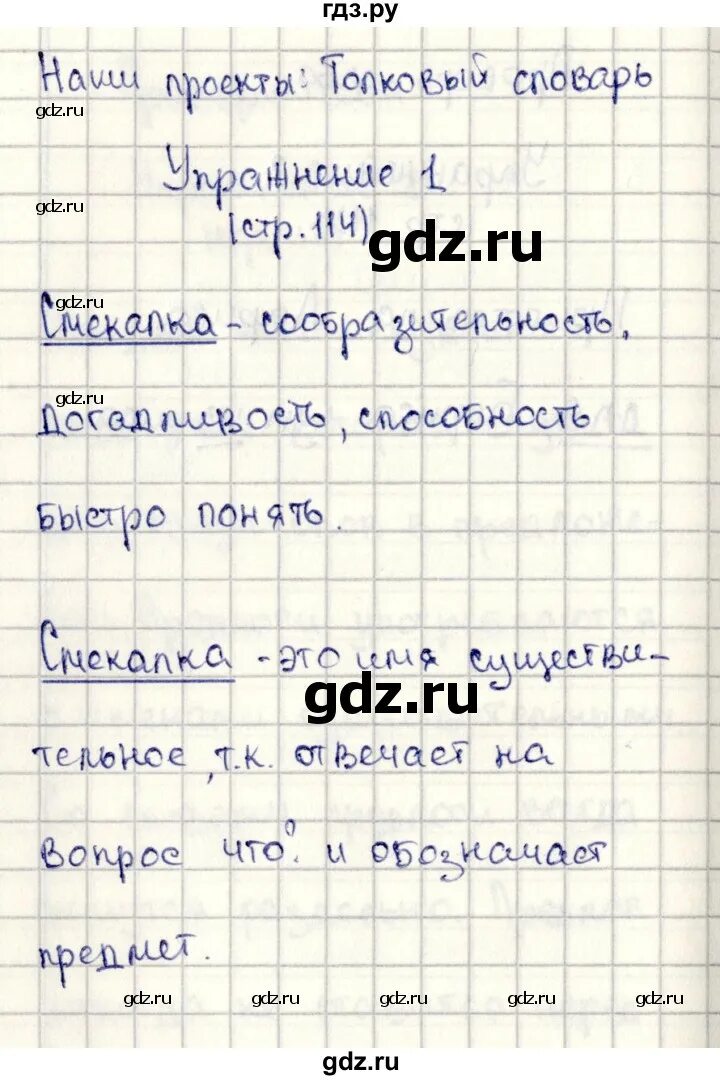 гдз.ру
Наши проекты: Толковый словарь
gdz.ru
Упражнение 1
gdz.ru
(стр. 114)
gdz.ru
gdz.ru
Смекалка - сообразительность,
gdz.ru
догадливость, способность
быстро понять.
Смекалка - это имя существи-
gdz.ru
тельное, т.к. отвечает на
вопрос что? и обозначает
предмет.
gdz.ru gdz.ru gdz.ru gdz.ru gdz.ru
gdz.ru